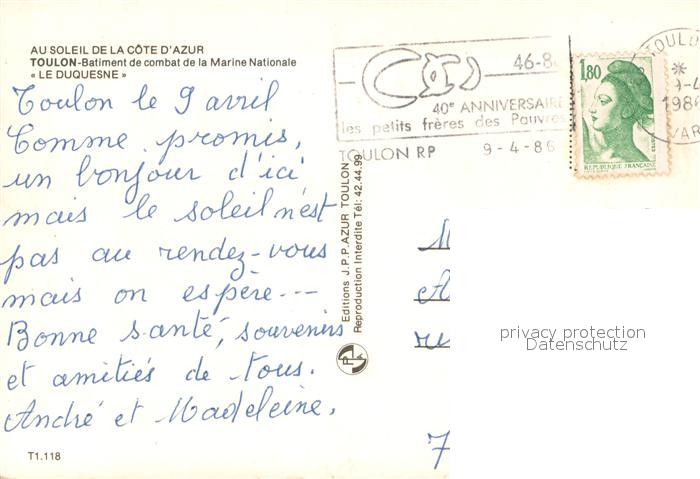 AU SOLEIL DE LA CÔTE D'AZUR
TOULON-Batiment de combat de la Marine Nationale
« LE DUQUESNE »
Toulon le 9 avril
Comme promis,
un bonjour d'ici
mais le soleil n'est
pas au rendez-vous
mais on espère---
Bonne santé, souvenirs
et amitiés de tous.
André et Madeleine.
T1.118
Editions J.P.P. AZUR TOULON
Reproduction Interdite Tél: 42.44.99.
46-8
40e ANNIVERSAIRE
les petits frères des Pauvres
TOULON RP 9-4-86
1,80
REPUBLIQUE FRANÇAISE
TOULO
9-4
198
VAR
M
A
ru
7
privacy protection
Datenschutz